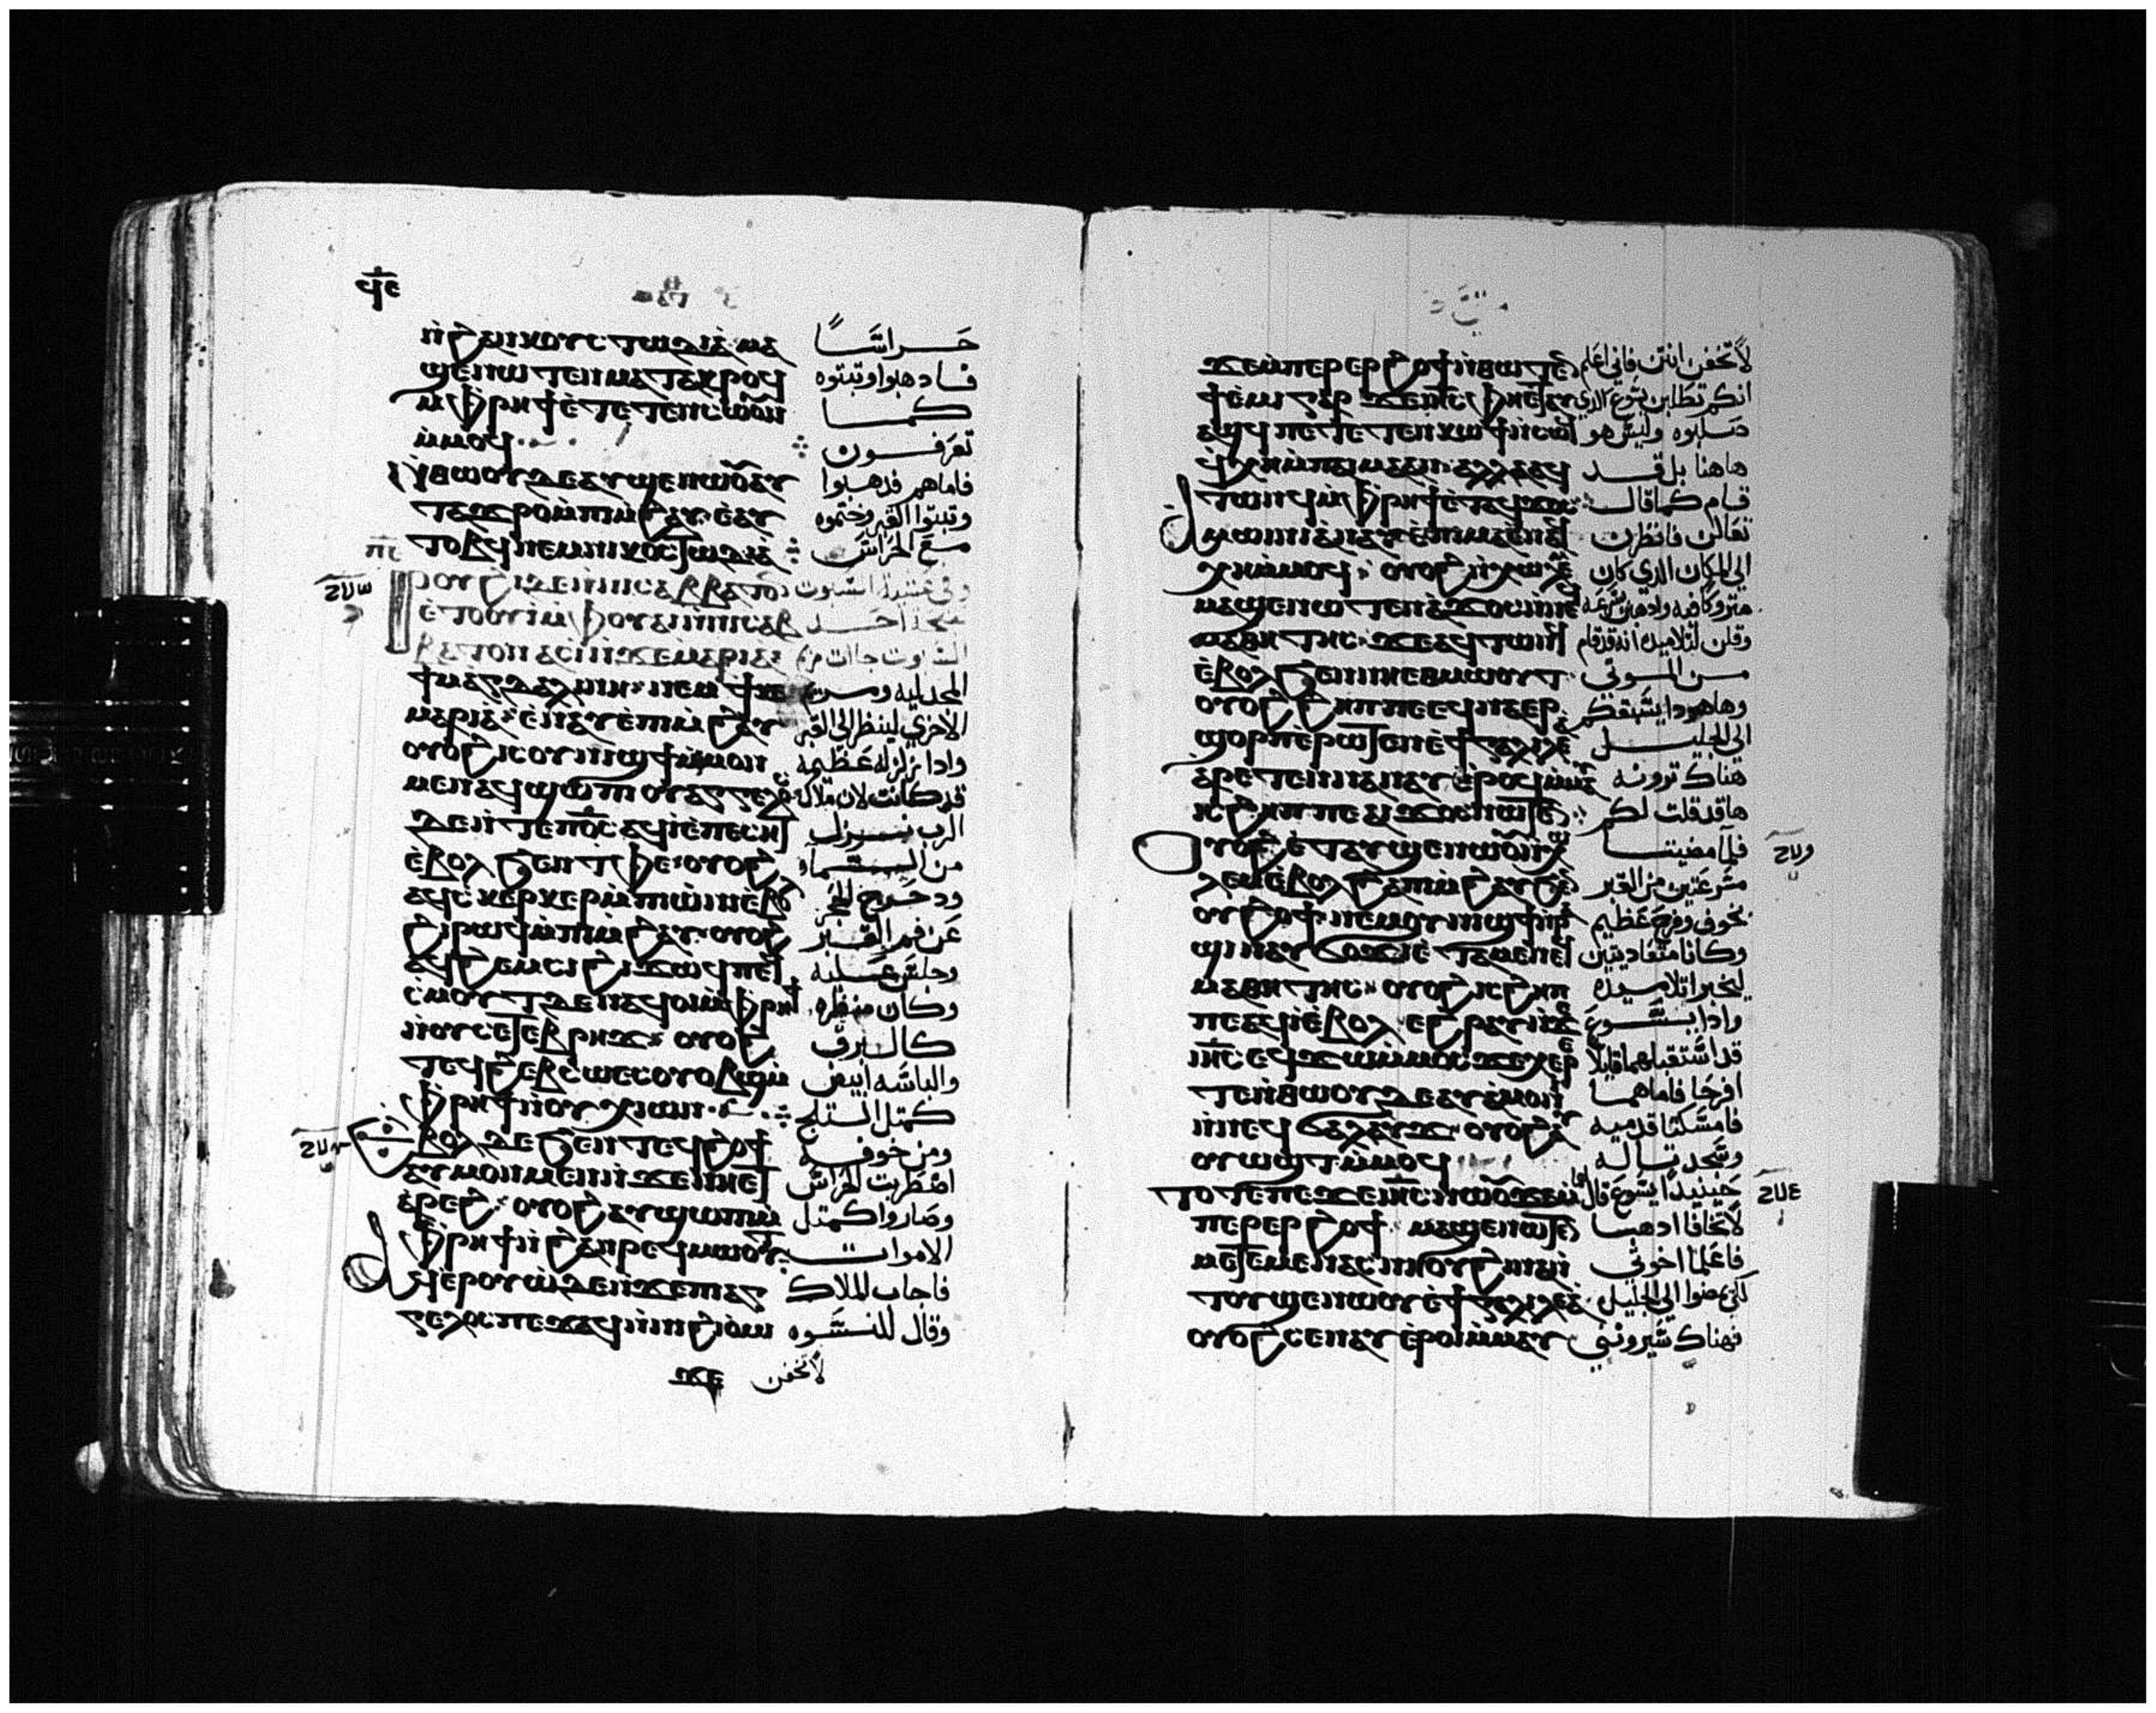 ϥⲉ
ⲛ̀ϩⲁⲛⲕⲟⲩⲥⲧⲱⲇⲓⲁ ⲙⲁ حراسًا
ϣⲉⲛⲱⲧⲉⲛ ⲙⲁⲧⲁϫⲣⲟϥ فادهبوا وتبتوه
ⲙ̀ⲫⲣⲏϯ ⲉ̀ⲧⲉⲧⲉⲛⲥⲱⲟⲩⲛ كما
ⲙ̀ⲙⲟϥ تعرفون
ⲛ̀ⲑⲱⲟⲩ ⲇⲉ ⲁⲩϣⲉⲛⲱⲟⲩ ⲁⲩ فاما هم فدهبوا
ⲧⲁϫⲣⲟ ⲙ̀ⲡⲓⲙ̀ϩⲁⲩ ⲉ̀ⲁⲩ وتبتوا القبر وختموه
ⲧⲟⲃϥ ⲛⲉⲙ ⲛⲓⲕⲟⲥⲧⲱⲇⲓⲁ مع الحراس
ⲣⲟⲩϩⲓ ⲇⲉ ⲛ̀ⲛⲓⲥⲁⲃⲃⲁⲧⲟⲛ وفي عشية السبوت
ⲉ̀ⲧⲟⲟⲩⲓ ⲙ̀ⲫⲟⲩⲁⲓ ⲛ̀ⲛⲓⲥⲁⲃ احد
ⲃⲁⲧⲟⲛ ⲁⲥⲓ̀ ⲛ̀ϫⲉ ⲙⲁⲣⲓⲁ السبوت جات
ϯⲙⲁⲅⲇⲁⲗⲓⲛⲏ ⲛⲉⲙ ϯⲕⲉ المجدليه
ⲙⲁⲣⲓⲁ ⲉ̀ⲛⲁⲩ ⲉ̀ⲡⲓⲙ̀ϩⲁⲩ الاخري لينظر الي القبر
ⲟⲩⲟϩ ⲓⲥ ⲟⲩⲛⲓϣϯ ⲙ̀ⲙⲟⲛ وادا زلزله عظيمه
ⲙⲉⲛ ⲁϥϣⲱⲡⲓ ⲟⲩⲁⲅⲅⲉⲗⲟⲥ قد كانت لان ملاك
ⲇⲉ ⲛ̀ⲧⲉ ⲡⲟ̅ⲥ̅ ⲁϥⲓ̀ ⲉ̀ⲡⲉⲥⲏⲧ الرب نزل
ⲉ̀ⲃⲟⲗ ϧⲉⲛ ⲧⲫⲉ ⲟⲩⲟϩ من السما
ⲁϥⲥⲕⲉⲣⲕⲉⲣ ⲙ̀ⲡⲓⲱ̀ⲛⲓ ⲉ̀ⲃⲟⲗ ودحرج الحجر
ϩⲓ ⲣⲱϥ ⲙ̀ⲡⲓⲙ̀ϩⲁⲩ ⲟⲩⲟϩ عن فم القبر
ⲁϥϩⲉⲙⲥⲓ ϩⲓϫⲱϥ ⲡⲉϥ وجلس عليه
ⲥⲙⲟⲧ ⲇⲉ ⲛⲁϥⲟⲓ ⲙ̀ⲫⲣⲏϯ وكان منظره
ⲛ̀ⲟⲩⲥⲉⲧⲉⲃⲣⲏϫ ⲟⲩⲟϩ كالبرق
ⲧⲉϥϩⲉⲃⲥⲱ ⲉⲥⲟⲩⲟⲃϣ ⲙ̀ والباسه ابيض
ⲫⲣⲏϯ ⲛ̀ⲟⲩⲭⲓⲱⲛ كمتل التلج
ⲉ̀ⲃⲟⲗ ⲇⲉ ϧⲉⲛ ⲧⲉϥϩⲟϯ ومن خوفه
ⲁⲩⲙⲟⲛⲙⲉⲛ ⲛ̀ϫⲉ ⲛⲏⲉⲧ اضطربت الحراس
ⲁ̀ⲣⲉϩ ⲟⲩⲟϩ ⲁⲩϣⲱⲡⲓ ⲙ̀ وصاروا كمتل
ⲫⲣⲏϯ ⲛ̀ϩⲁⲛⲣⲉϥⲙⲱⲟⲩⲧ الاموات
ⲁϥⲉⲣⲟⲩⲱ̀ ⲇⲉ ⲛ̀ϫⲉ ⲡⲓⲁⲅ فاجاب الملاك
ⲅⲉⲗⲟⲥ ⲡⲉϫⲁϥ ⲛ̀ⲛⲓϩⲓⲟ̀ⲙⲓ وقال للنسوه
ϫⲉ لا تخفن
ϫⲉ ⲙ̀ⲡⲉⲣⲉⲣϩⲟϯ ⲛ̀ⲑⲱⲧⲉⲛ لا تخفن انتن فاني اعلم
ϯⲉ̀ⲙⲓ ⲅⲁⲣ ϫⲉ ⲓⲏ̅ⲥ̅ ⲫⲏⲉⲧⲁⲩ انكم تطلبن يسوع الدي
ⲁϣϥ ⲡⲉⲧⲉⲧⲉⲛⲕⲱϯ ⲛ̀ⲥⲱϥ صلبوه وليس هو
ϥ̀ⲭⲏ ⲙ̀ⲡⲁⲓⲙⲁ ⲁⲛ ⲁⲗⲗⲁ ⲁϥ هاهنا بل قد
ⲧⲱⲛϥ ⲙ̀ⲫⲣⲏϯ ⲉ̀ⲧⲁϥϫⲟⲥ قام كما قال
ⲁⲙⲱⲓⲛⲓ ⲁ̀ⲛⲁⲩ ⲉ̀ⲡⲓⲙⲁ ⲉ̀ⲛⲁϥ تعالن فانظرن
ⲭⲏ ⲙ̀ⲙⲟϥ ⲟⲩⲟϩ ⲛ̀ⲭⲱⲗⲉⲙ الي المكان الدي كان
ⲙⲁϣⲉⲛⲱⲧⲉⲛ ⲁ̀ϫⲟⲥ ⲛ̀ⲛⲉϥ متروكا فيه وادهبن بسرعه
ⲙⲁⲑⲏⲧⲏⲥ ϫⲉ ⲁϥⲧⲱⲛϥ وقلن لتلاميده انه قد قام
ⲉ̀ⲃⲟⲗ ϧⲉⲛ ⲛⲏⲉⲑⲙⲱⲟⲩⲧ من الموتي
ⲟⲩⲟϩ ϩⲏⲡⲡⲉ ϥⲛⲁⲉⲣ وها هودا يسبقكم
ϣⲟⲣⲡ ⲉ̀ⲣⲱⲧⲉⲛ ⲉ̀ϯⲅⲁⲗⲓⲗⲉⲁ الي الجليل
ⲁⲣⲉⲧⲉⲛⲛⲁⲛⲁⲩ ⲉ̀ⲣⲟϥ ⲙ̀ⲙⲁⲩ هناك ترونه
ⲓⲥ ϩⲏⲡⲡⲉ ⲁⲓϫⲟⲥ ⲛⲱⲧⲉⲛ ها قد قلت لكم
ⲟⲩⲟϩ ⲉ̀ⲧⲁⲩϣⲉⲛⲱⲟⲩ ⲛ̀ⲭⲱ فلما مضيتا
ⲗⲉⲙ ⲉ̀ⲃⲟⲗ ϩⲁ ⲡⲓⲙ̀ϩⲁⲩ ϧⲉⲛ مسرعتين من القبر
ⲟⲩϩⲟϯ ⲛⲉⲙ ⲟⲩⲛⲓϣϯ ⲛ̀ⲣⲁ بخوف وفرح عظيم
ϣⲓ ⲛⲁⲩϭⲟϫⲓ ⲉ̀ⲧⲁⲙⲉ ⲛⲉϥ وكانا متعاديتين
ⲙⲁⲑⲏⲧⲏⲥ ⲟⲩⲟϩ ⲓⲥ ϩⲏⲡ ليخبرا تلاميده
ⲡⲉ ⲁϥⲓ̀ ⲉ̀ⲃⲟⲗ ⲉϩⲣⲁⲩ ⲛ̀ϫⲉ وادا يسوع
ⲓⲏ̅ⲥ̅ ⲉϥϫⲱ ⲙ̀ⲙⲟⲥ ϫⲉ ⲭⲉⲣⲉ قد استقبلهما قايلا
ⲧⲉ ⲛ̀ⲑⲱⲟⲩ ⲇⲉ ⲁⲩⲁ̀ⲙⲟⲛⲓ افرحا فاما هما
ⲛ̀ⲛⲉϥϭⲁⲗⲁⲩϫ ⲟⲩⲟϩ ⲁⲩ فامسكتا قدميه
ⲟⲩⲱϣⲧ ⲙ̀ⲙⲟϥ وسجدتا له
ⲧⲟⲧⲉ ⲡⲉϫⲉ ⲓⲏ̅ⲥ̅ ⲛⲱⲟⲩ ϫⲉ ⲙ̀ حينيدا يسوع قال لهما
ⲡⲉⲣⲉⲣϩⲟϯ ⲙⲁϣⲉⲛⲱⲧⲉⲛ لا تخافا ادهبا
ⲙⲁⲧⲁⲙⲉ ⲛⲁⲥⲛⲏⲟⲩ ϩⲓⲛⲁ ⲛ̀ فاعلما اخوتي
ⲧⲟⲩϣⲉⲛⲱⲟⲩ ⲉ̀ϯⲅⲁⲗⲓⲗⲉⲁ كي يمضوا الي الجليل
ⲟⲩⲟϩ ⲥⲉⲛⲁⲩ ⲉ̀ⲣⲟⲓ ⲙ̀ⲙⲁⲩ فهناك سيروني